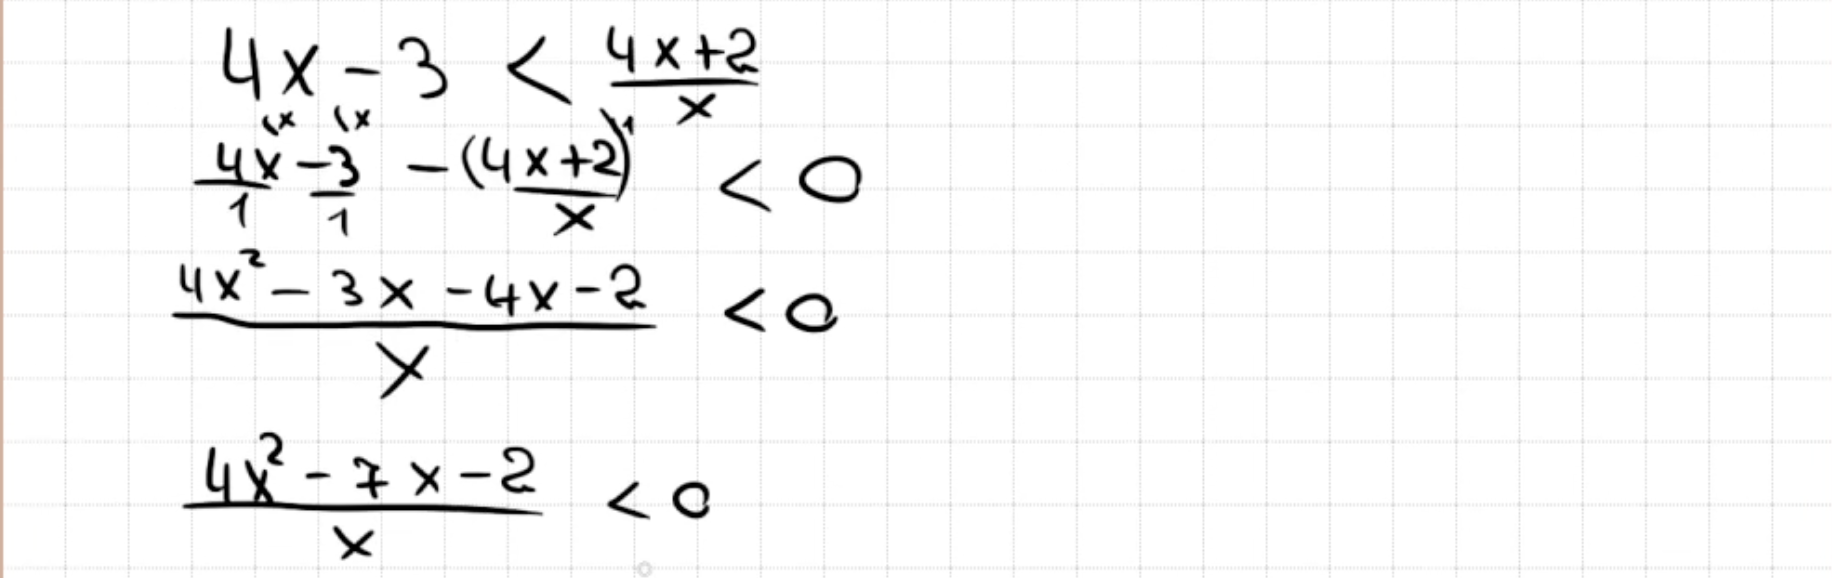 4x - 3 < (4x+2)/x
(x (x
4x/1 - 3/1 - (4x+2)/x )1 < 0
(4x² - 3x - 4x - 2)/x < 0
(4x² - 7x - 2)/x < 0